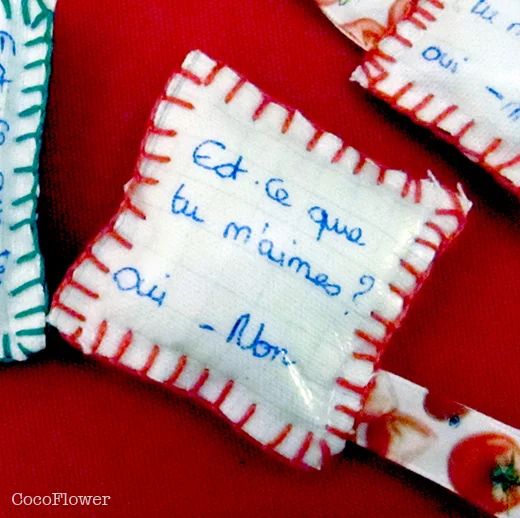 Est-ce que
tu m'aimes ?
Oui - Non
tu m
oui -
CocoFlower